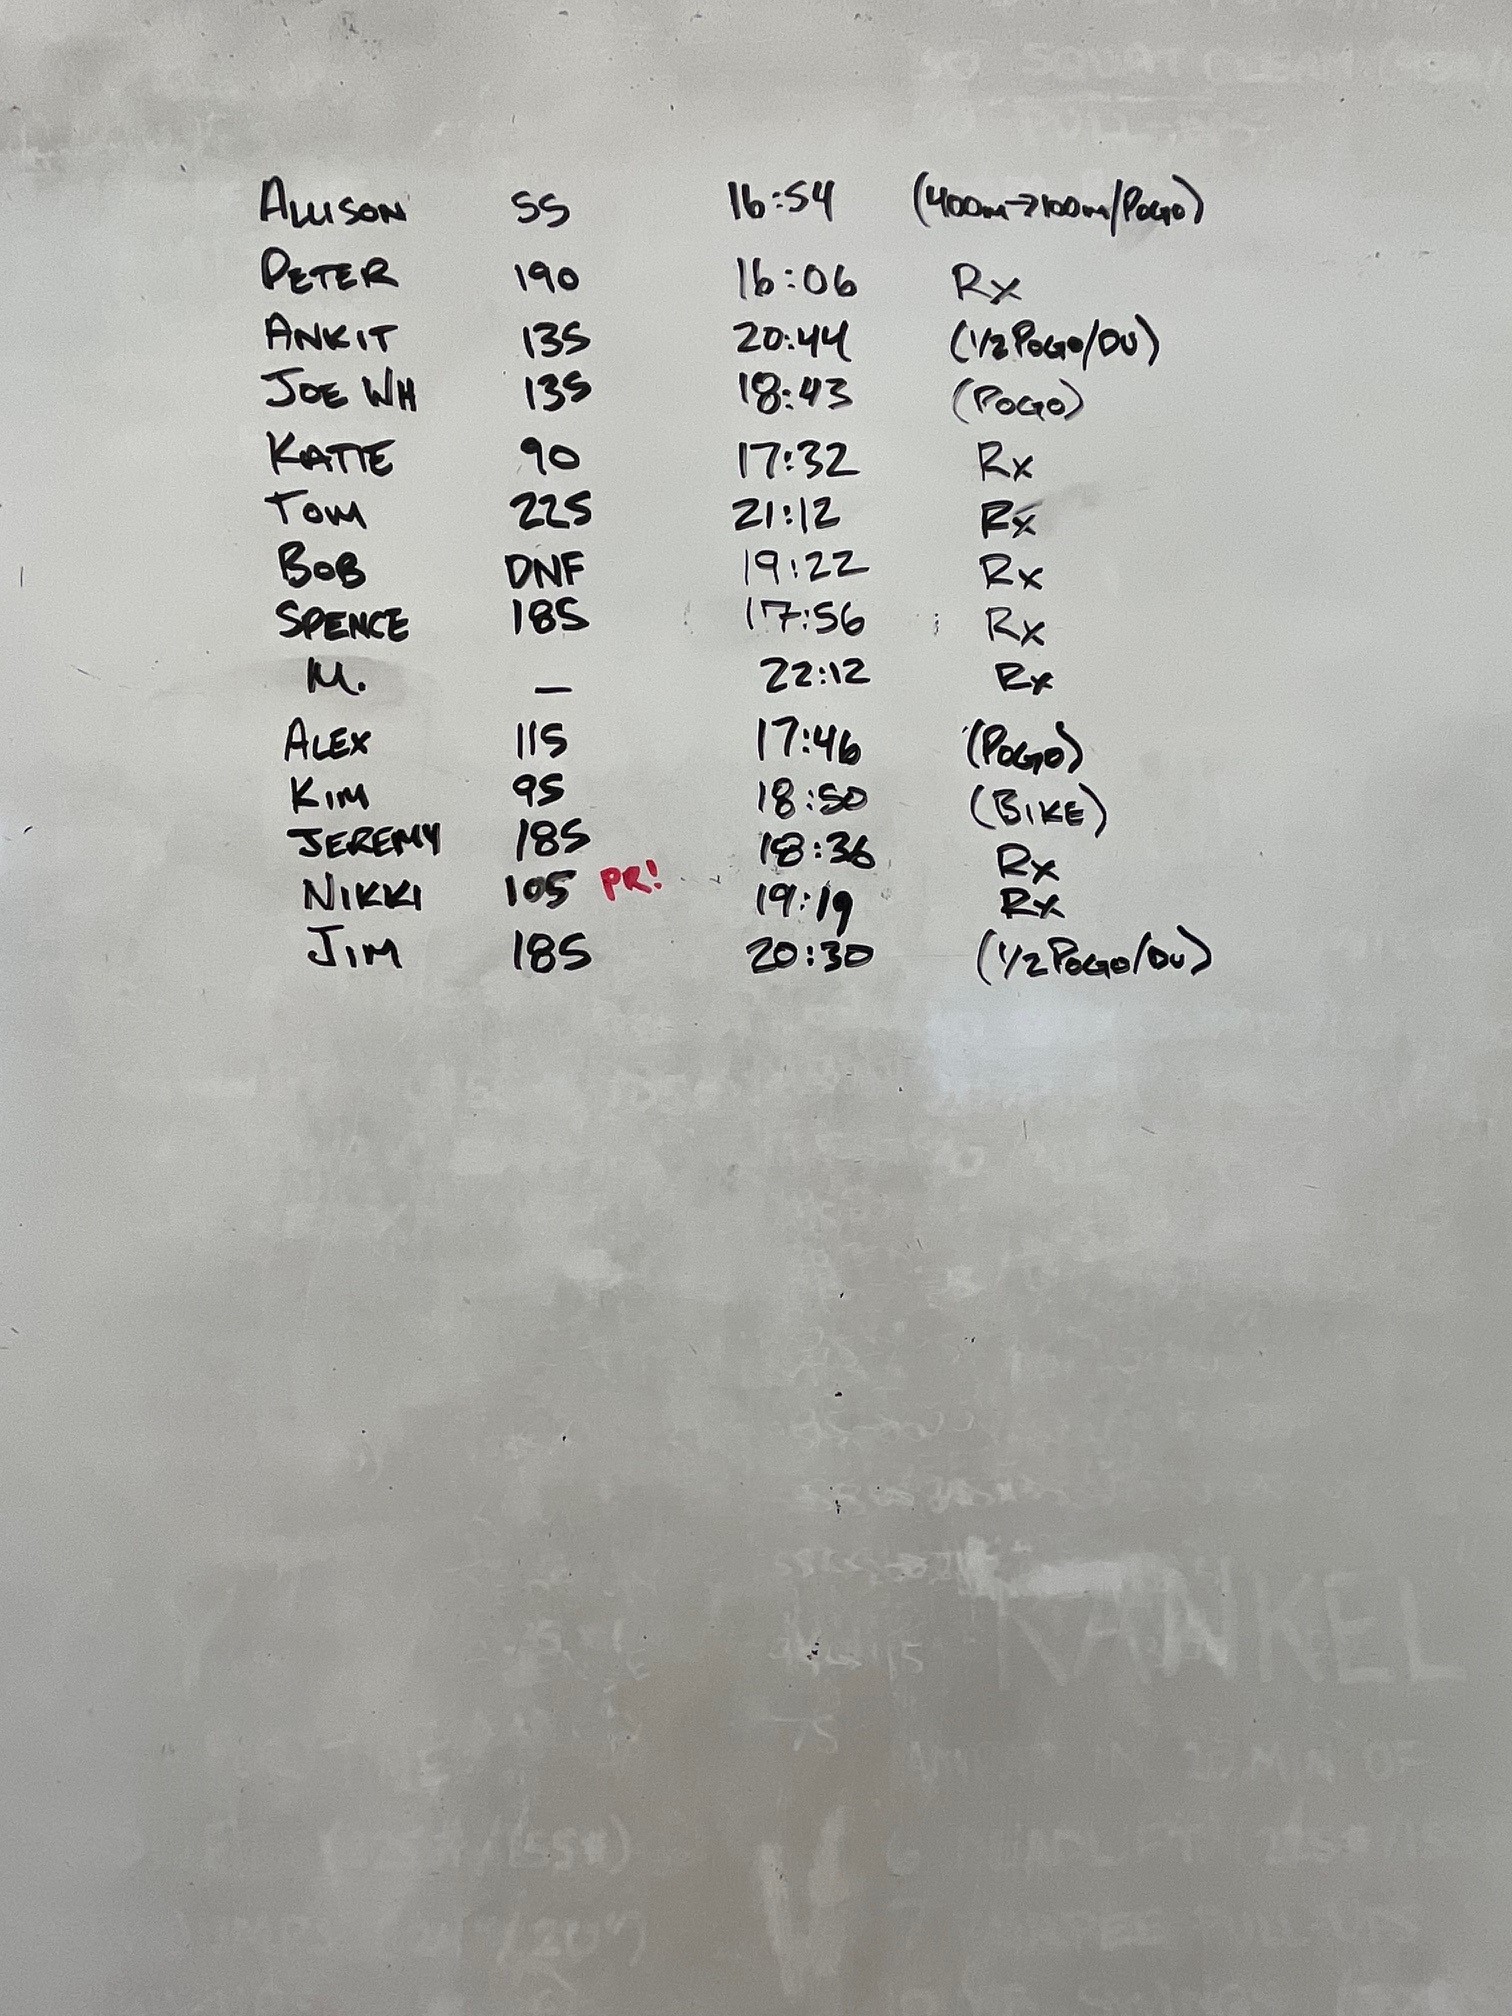 ALLISON 55 16:54 (400m→100m/POGO)
PETER 190 16:06 Rx
ANKIT 135 20:44 (1/2 POGO/DU)
JOE WH 135 18:43 (POGO)
KATIE 90 17:32 Rx
TOM 225 21:12 Rx
BOB DNF 19:22 Rx
SPENCE 185 17:56 Rx
M. — 22:12 Rx
ALEX 115 17:46 (POGO)
KIM 95 18:50 (BIKE)
JEREMY 185 18:36 Rx
NIKKI 105 PR! 19:19 Rx
JIM 185 20:30 (1/2 POGO/DU)
KANKEL